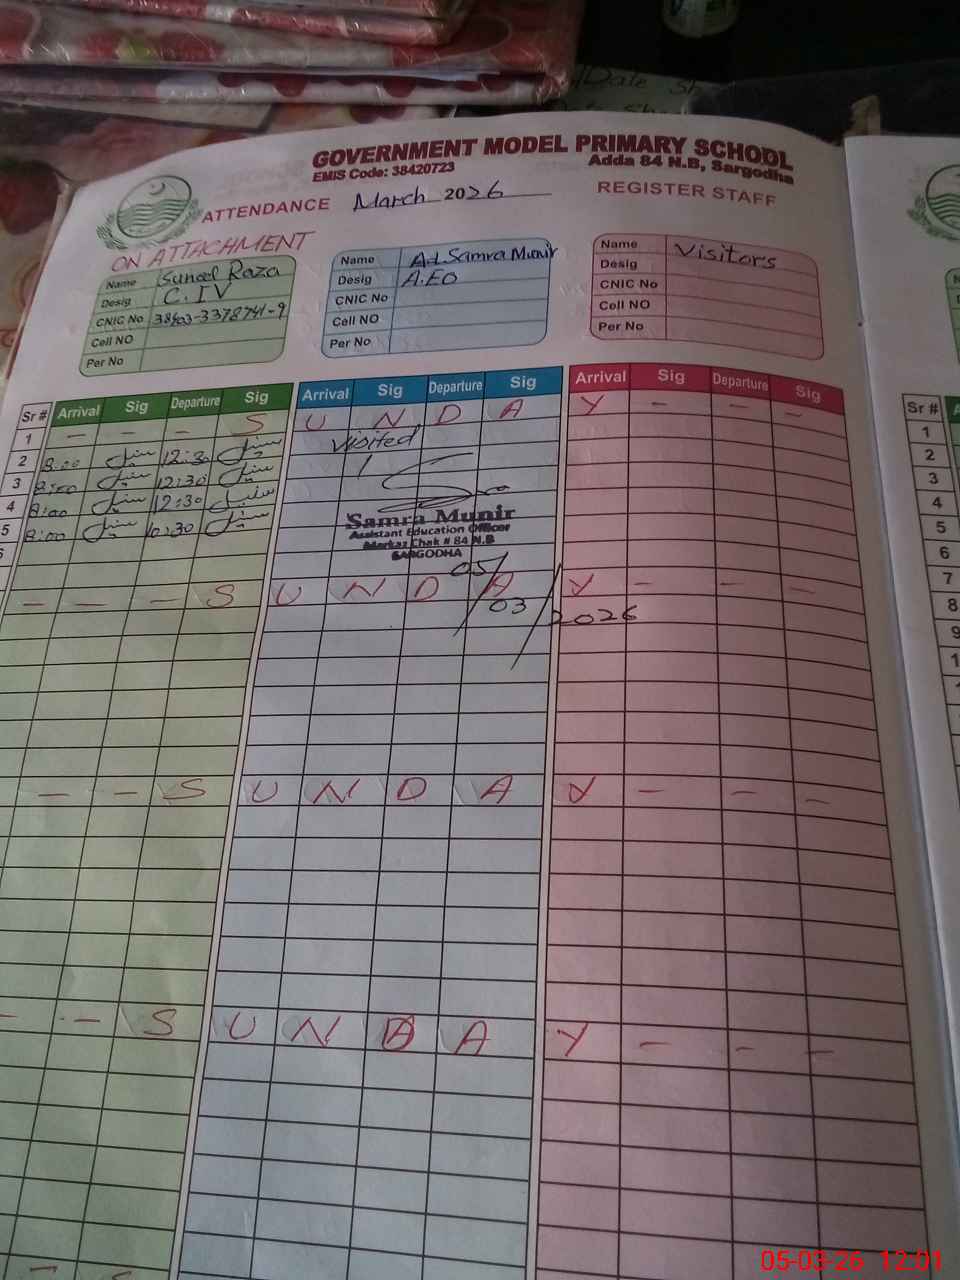 Date Sh
GOVERNMENT MODEL PRIMARY SCHOOL
EMIS Code: 38420723
Adda 84 N.B, Sargodha
ATTENDANCE March 2026 REGISTER STAFF
ON ATTACHMENT
Name Suneel Raza
Desig C.IV
CNIC No 38403-3378741-9
Cell NO
Per No
Name Samra Munir
Desig A.EO
CNIC No
Cell NO
Per No
Name Visitors
Desig
CNIC No
Cell NO
Per No
Sr # Arrival Sig Departure Sig Arrival Sig Departure Sig Arrival Sig Departure Sig Sr #
1 - - - S U N D A Y - - - 1
2 8:00 سنیل 12:30 سنیل Visited 2
3 8:00 سنیل 12:30 سنیل 3
4 8:00 سنیل 12:30 سنیل 4
5 8:00 سنیل 10:30 سنیل 5
Samra Munir
Assistant Education Officer
Markaz Chak # 84 N.B
SARGODHA
6
05/03/2026
7
- - - S U N D A Y - - -
8
9
- - S U N D A Y - - -
- - S U N D A Y - - -
- S
05-03-26 12:01